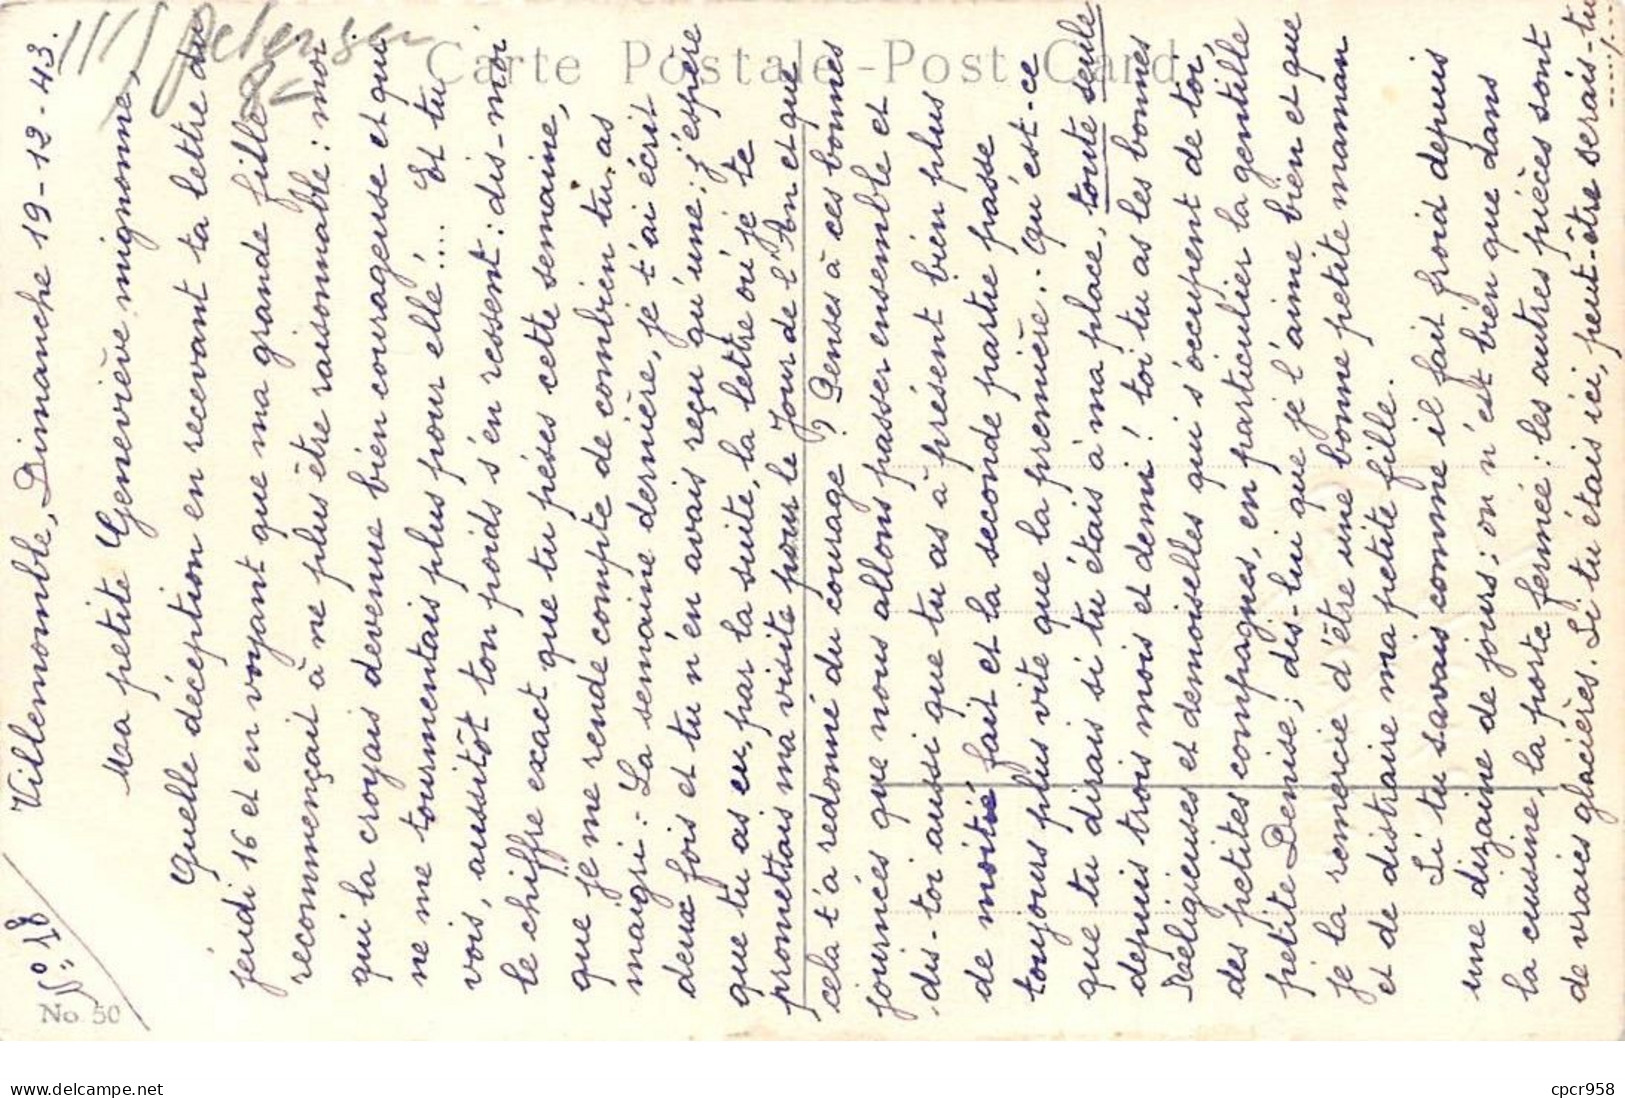 Villemomble, Dimanche 19-12-43.
N° 18
Ma petite Geneviève mignonne,
Quelle déception en recevant ta lettre du
jeudi 16 et en voyant que ma grande fille
recommençait à ne plus être raisonnable: moi
qui la croyais devenue bien courageuse et qui
ne me tourmentais plus pour elle!... Et tu
vois, aussitôt ton poids s'en ressent: dis-moi
le chiffre exact que tu pèses cette semaine,
que je me rende compte de combien tu as
maigri.- La semaine dernière, je t'ai écrit
deux fois et tu n'en avais reçu qu'une; j'espère
que tu as eu, par la suite, la lettre où je te
promettais ma visite pour le Jour de l'An et que
cela t'a redonné du courage? Penses à ces bonnes
journées que nous allons passer ensemble et
dis-toi aussi que tu as à présent bien plus
de moitié fait et la seconde partie passe
toujours plus vite que la première.. Qu'est-ce
que tu dirais si tu étais à ma place, toute seule
depuis trois mois et demi! toi tu as les bonnes
Religieuses et demoiselles qui s'occupent de toi,
des petites compagnes, en particulier la gentille
petite Denise; dis-lui que je l'aime bien et que
je la remercie d'être une bonne petite maman
et de distraire ma petite fille.
Si tu savais comme il fait froid depuis
une dizaine de jours; on n'est bien que dans
la cuisine, la porte fermée: les autres pièces sont
de vraies glacières. Si tu étais ici, peut-être serais-tu
..../...
Carte Postale - Post Card
No 50
8€
delcampe.net
cpcr958